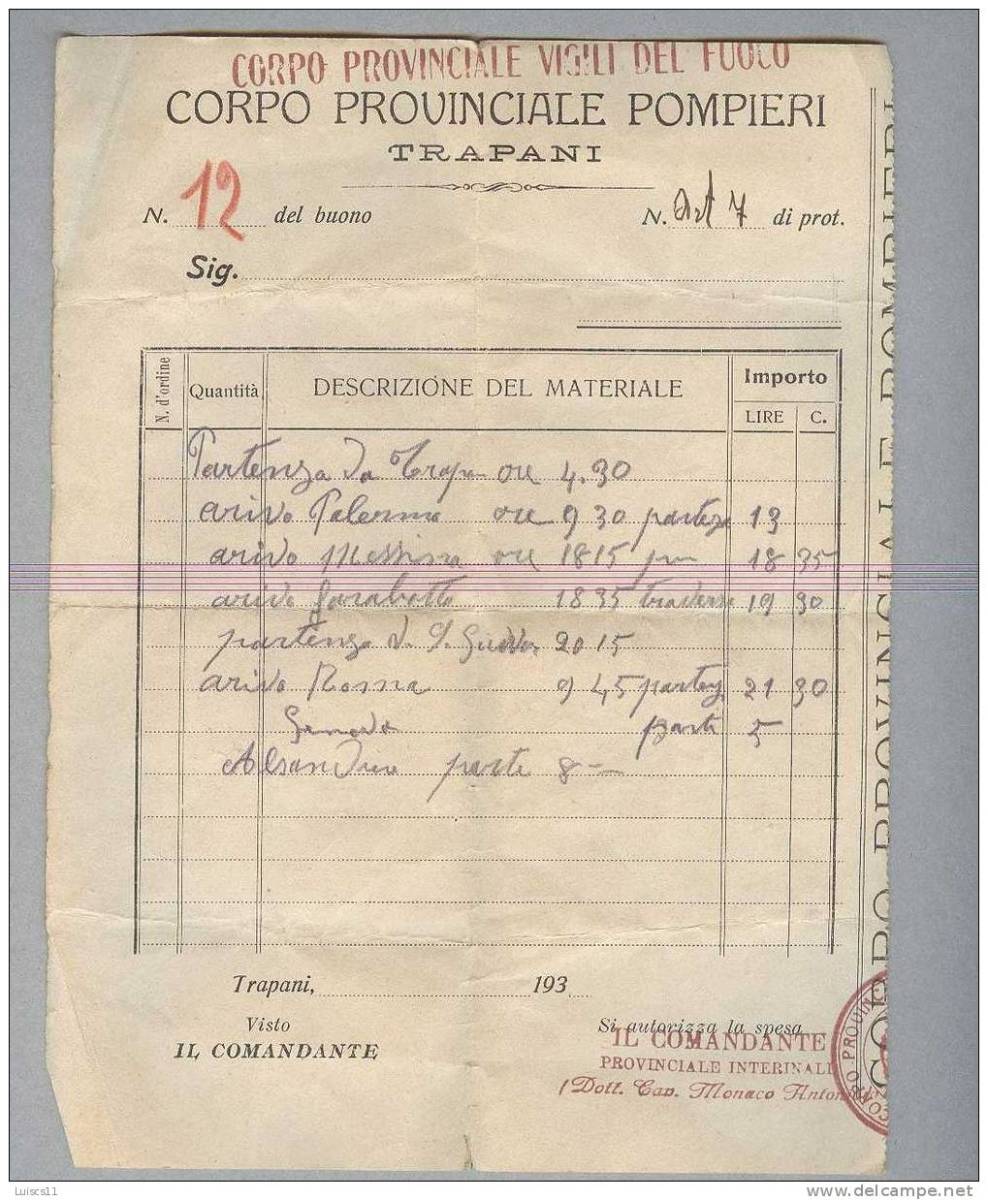 CORPO PROVINCIALE VIGILI DEL FUOCO
CORPO PROVINCIALE POMPIERI
TRAPANI
N. 12 del buono
N. 7 di prot.
Sig.
N. d'ordine Quantità DESCRIZIONE DEL MATERIALE Importo
LIRE C.
Partenza da Trapn ore 4.30
arivo Palermo ore 9 30 13
arivo Messina ore 18 15 18 35
arivo 18 35 19 30
partenza 20 15
arivo Roma 9 45 21 30
Genova parte 5
parte 8 —
Trapani, 193
Visto
IL COMANDANTE
Si autorizza la spesa
IL COMANDANTE
PROVINCIALE INTERINALE
(Dott. Cap. Monaco Anton
CORPO PROVINCIALE POMPIERI
CORPO PROVINC
Luiscs11
www.delcampe.net